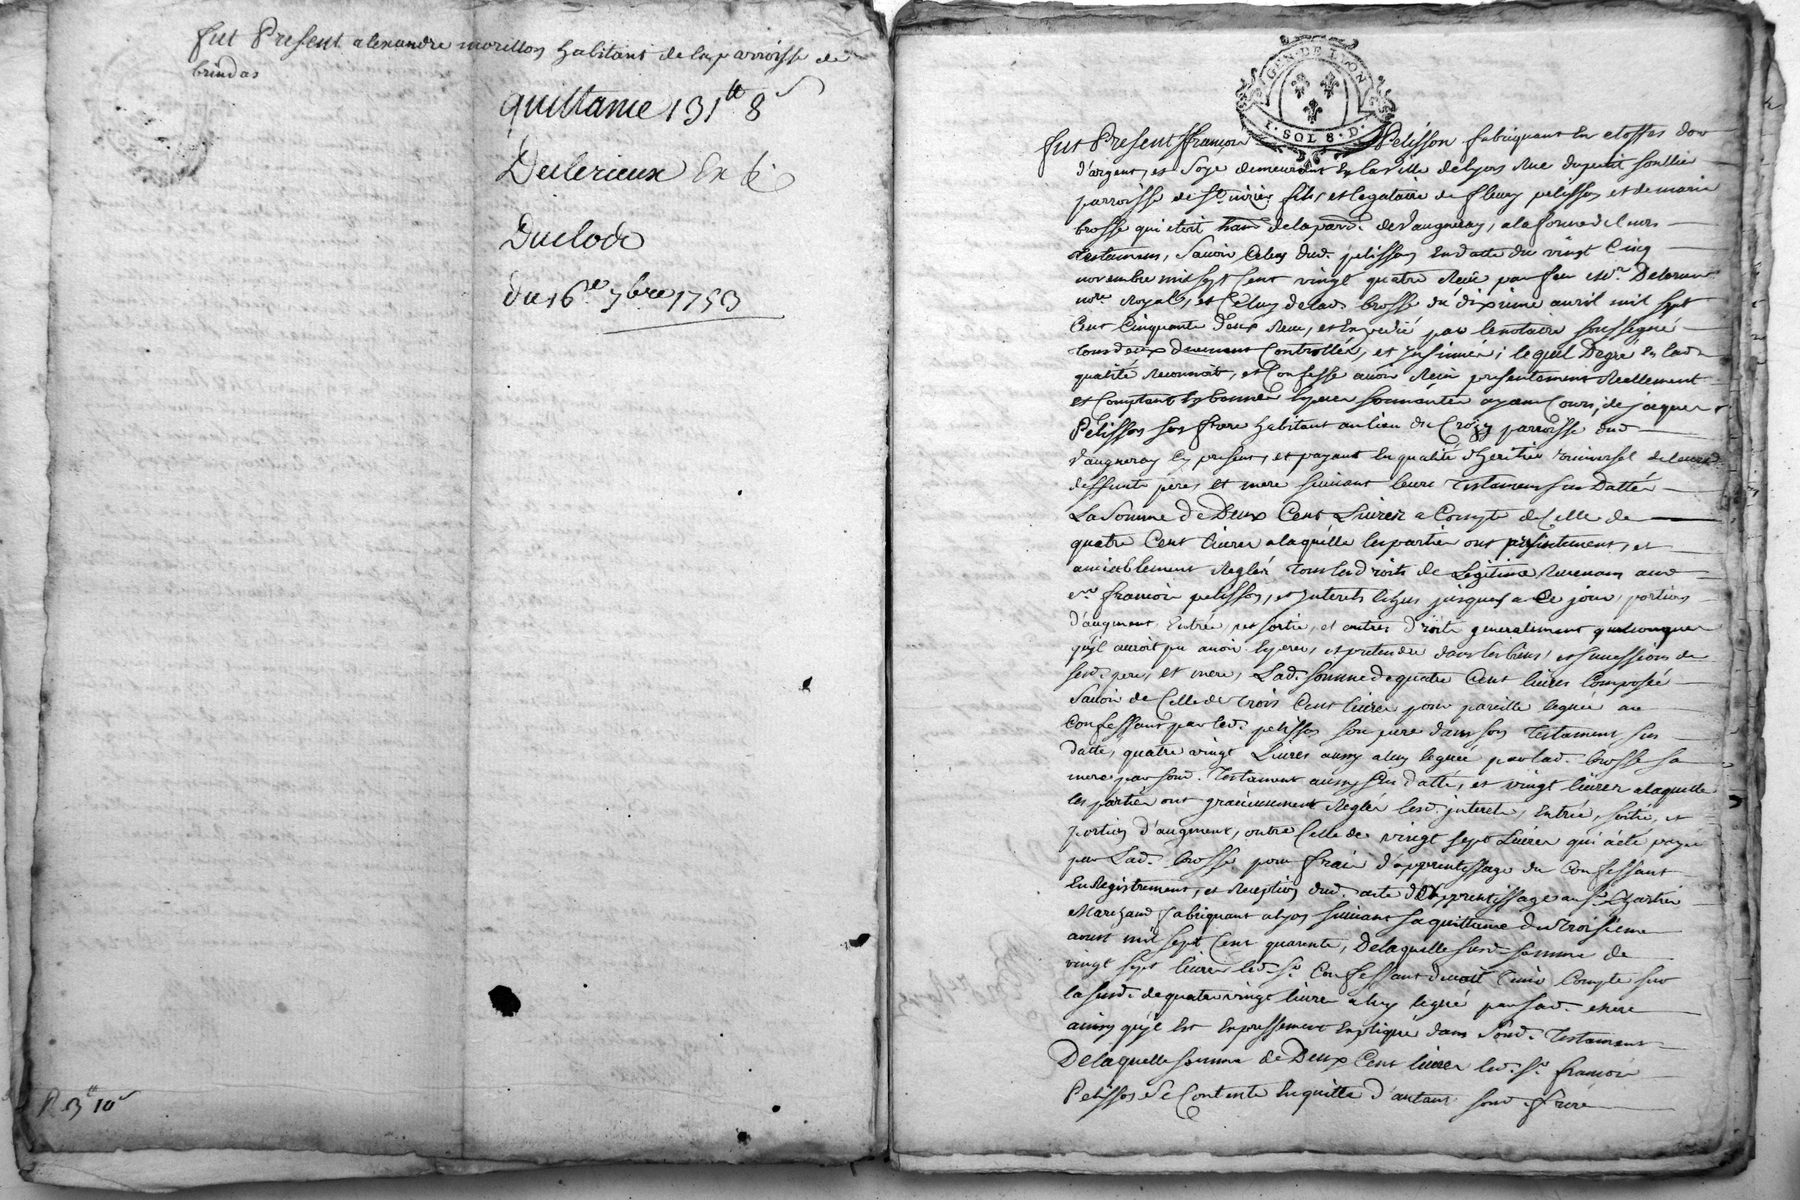 fut Present alexandre morillon habitant de la parroisse de
brindas
quittance 131 tt 8 s
Duclerieux
Duclode
du 16e 7bre 1753
R. 3 tt 10 s
GEN. DE LYON
1. SOL 8. D.
fut Present françois Pelisson fabriquant en etoffes d'or
d'argent, et Soye demeurant en la ville de lyon Rue du petit soullié
parroisse de St. nizier fils et legataire de fleury pelisson et de marie
brosse qui etoit de la parr. de Vaugneray, a la forme de leurs
testamens, Savoir Celuy dud. pelisson en datte du vingt Cinq
novembre mil sept Cent vingt quatre Receu par feu Me.
nore Royal, et Celuy de lad. brosse du dixieme avril mil sept
Cent Cinquante deux Receu, et Expedié par le notaire soussigné
tous deux duement Controllés, et insinués; lequel Degré en lad.
qualité Reconnoit, et Confesse avoir Receu presentement Reellement
et Comptant en bonnes especes sonnantes ayant Cours, de jacques
Pelisson son frere habitant au lieu du Crozy parroisse dud.
Vaugneray Cy present, et payant en qualité d'heritier universel de leursd.
deffunts pere, et mere suivant leurs Testamens sus Dattés
La Somme de Deux Cent Livres a Compte de Celle de
quatre Cent livres a laquelle les parties ont presentement, et
amiablement Reglés tous les droits de Legitime Revenans aud.
sr. françois pelisson, et interets Echus jusques a Ce jour, portion
d'augment, Entrée, et sortie, et autres droits generalement quelconques
qu'il auroit pu avoir esperer, et pretendre dans les biens, et successions de
sesd. pere, et mere, Lad. somme de quatre Cent livres Composée
Savoir de Celle de trois Cent livres pour pareille leguée au
Confessant par led. pelisson son pere dans son Testament sus
datté, quatre vingt Livres aussy a luy leguée par lad. brosse sa
mere par sond. Testament aussy sus datté, et vingt livres a laquelle
les parties ont gracieusement Reglés lesd. interets, Entrée, sortie, et
portion d'augment, outre Celle de vingt sept Livres qui a été payée
par Lad. brosse pour frais d'apprentissage du Confessant
EnRegistrement, et Reception dud. acte d'apprentissage au Sr. Chartié
Marchand fabriquant a lyon suivant sa quittance du troisieme
aoust mil sept Cent quarente, De laquelle susd. somme de
vingt sept livres led. Sr. Confessant devoit tenir Compte sur
la susd. de quatre vingt livres a luy legué par sad. mere
ainsy qu'il est Expressement Expliqué dans sond. Testament
De laquelle somme de Deux Cent livres led. Sr. françois
Pelisson se Contente En quitte d'autant sond. frere